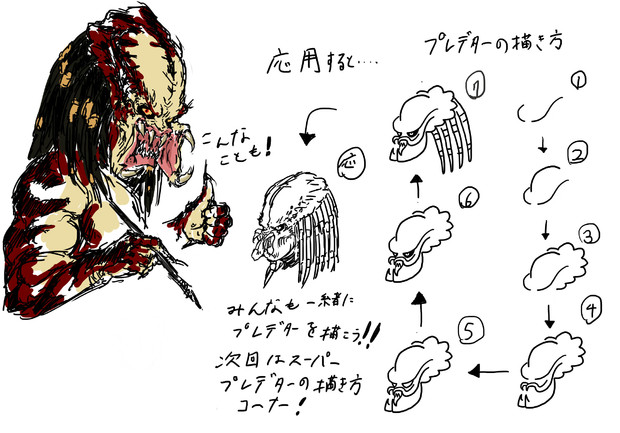 プレデターの描き方
①
②
③
④
⑤
⑥
⑦
応用すると‥‥
応
こんな
ことも!
みんなも一緒に
プレデターを描こう!!
次回はスーパー
プレデターの描き方
コーナー!